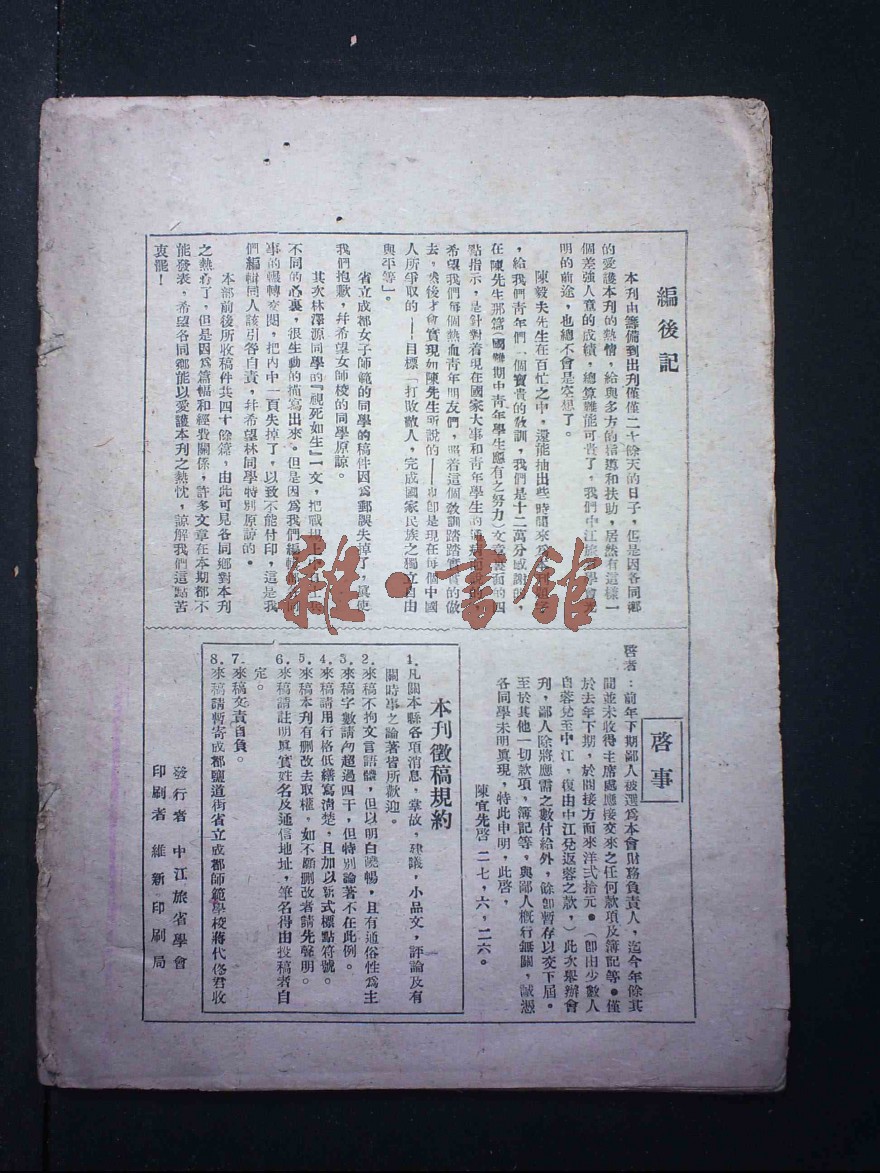 編後記
本刊由籌備到出刊僅僅二十餘天的日子，但是因各同鄉
的愛護本刊的熱情，給與多方的指導和扶助，居然有這樣一
個差強人意的成績，總算難能可貴了，我們中江旅省學會光
明的前途，也總不會是空想了。
陳毅夫先生在百忙之中，還能抽出些時間來為本刊
，給我們青年們一個寶貴的教訓，我們是十二萬分感謝的，
在陳先生那篇（國難期中青年學生應有之努力）文章裏面的四
點指示，是針對着現在國家大事和青年學生的
希望我們每個熱血青年朋友們，照着這個教訓踏踏實實的做
去，然後才會實現如陳先生所說的——也即是現在每個中國
人所爭取的——目標「打敗敵人，完成國家民族之獨立自由
與平等」。
省立成都女子師範的同學的稿件因為郵誤失掉了，眞使
我們抱歉，幷希望女師校的同學原諒。
其次林澤源同學的『視死如生』一文，把戰場上
不同的心裏，很生動的描寫出來。但是因爲我們編輯部同
事的輾轉交閱，把內中一頁失掉了，以致不能付印，這是我
們編輯同人該引咎自責，幷希望林同學特別原諒的。
本部前後所收稿件共四十餘篇，由此可見各同鄉對本刊
之熱忱了，但是因爲篇幅和經費關係，許多文章在本期都不
能發表，希望各同鄉能以愛護本刊之熱忱，諒解我們這點苦
衷罷！
啓事
啓者：前年下期鄙人被選爲本會財務負責人，迄今年餘其
間並未收得主席處應接交來之任何款項及簿記等。僅
於去年下期，於間接方面來洋弍拾元。（卽由少數人
自蓉兌至中江，復由中江兌返蓉之款，）此次舉辦會
刊，鄙人除將應需之數付給外，餘卽暫存以交下屆。
至於其他一切款項，簿記等。與鄙人槪行無關，誠憑
各同學未明眞現，特此申明，此啓，
陳宜先啓 二七，六，二六。
本刊徵稿規約
1．凡關本縣各項消息，掌故，建議，小品文，評論及有
關時事之論著皆所歡迎。
2．來稿不拘文言語體，但以明白曉暢，且有通俗性爲主
3．來稿字數請勿超過四千，但特別論著不在此例。
4．來稿請用行格低繕寫淸楚，且加以新式標點符號。
5．來稿本刊有删改去取權，如不願删改者請先聲明。
6．來稿請註明眞實姓名及通信地址，筆名得由投稿者自
定。
7．來稿文責自負。
8．來稿請暫寄成都鹽道街省立成都師範學校蔣代修君收
發行者　中江旅省學會
印刷者　維新印刷局
雜·書館